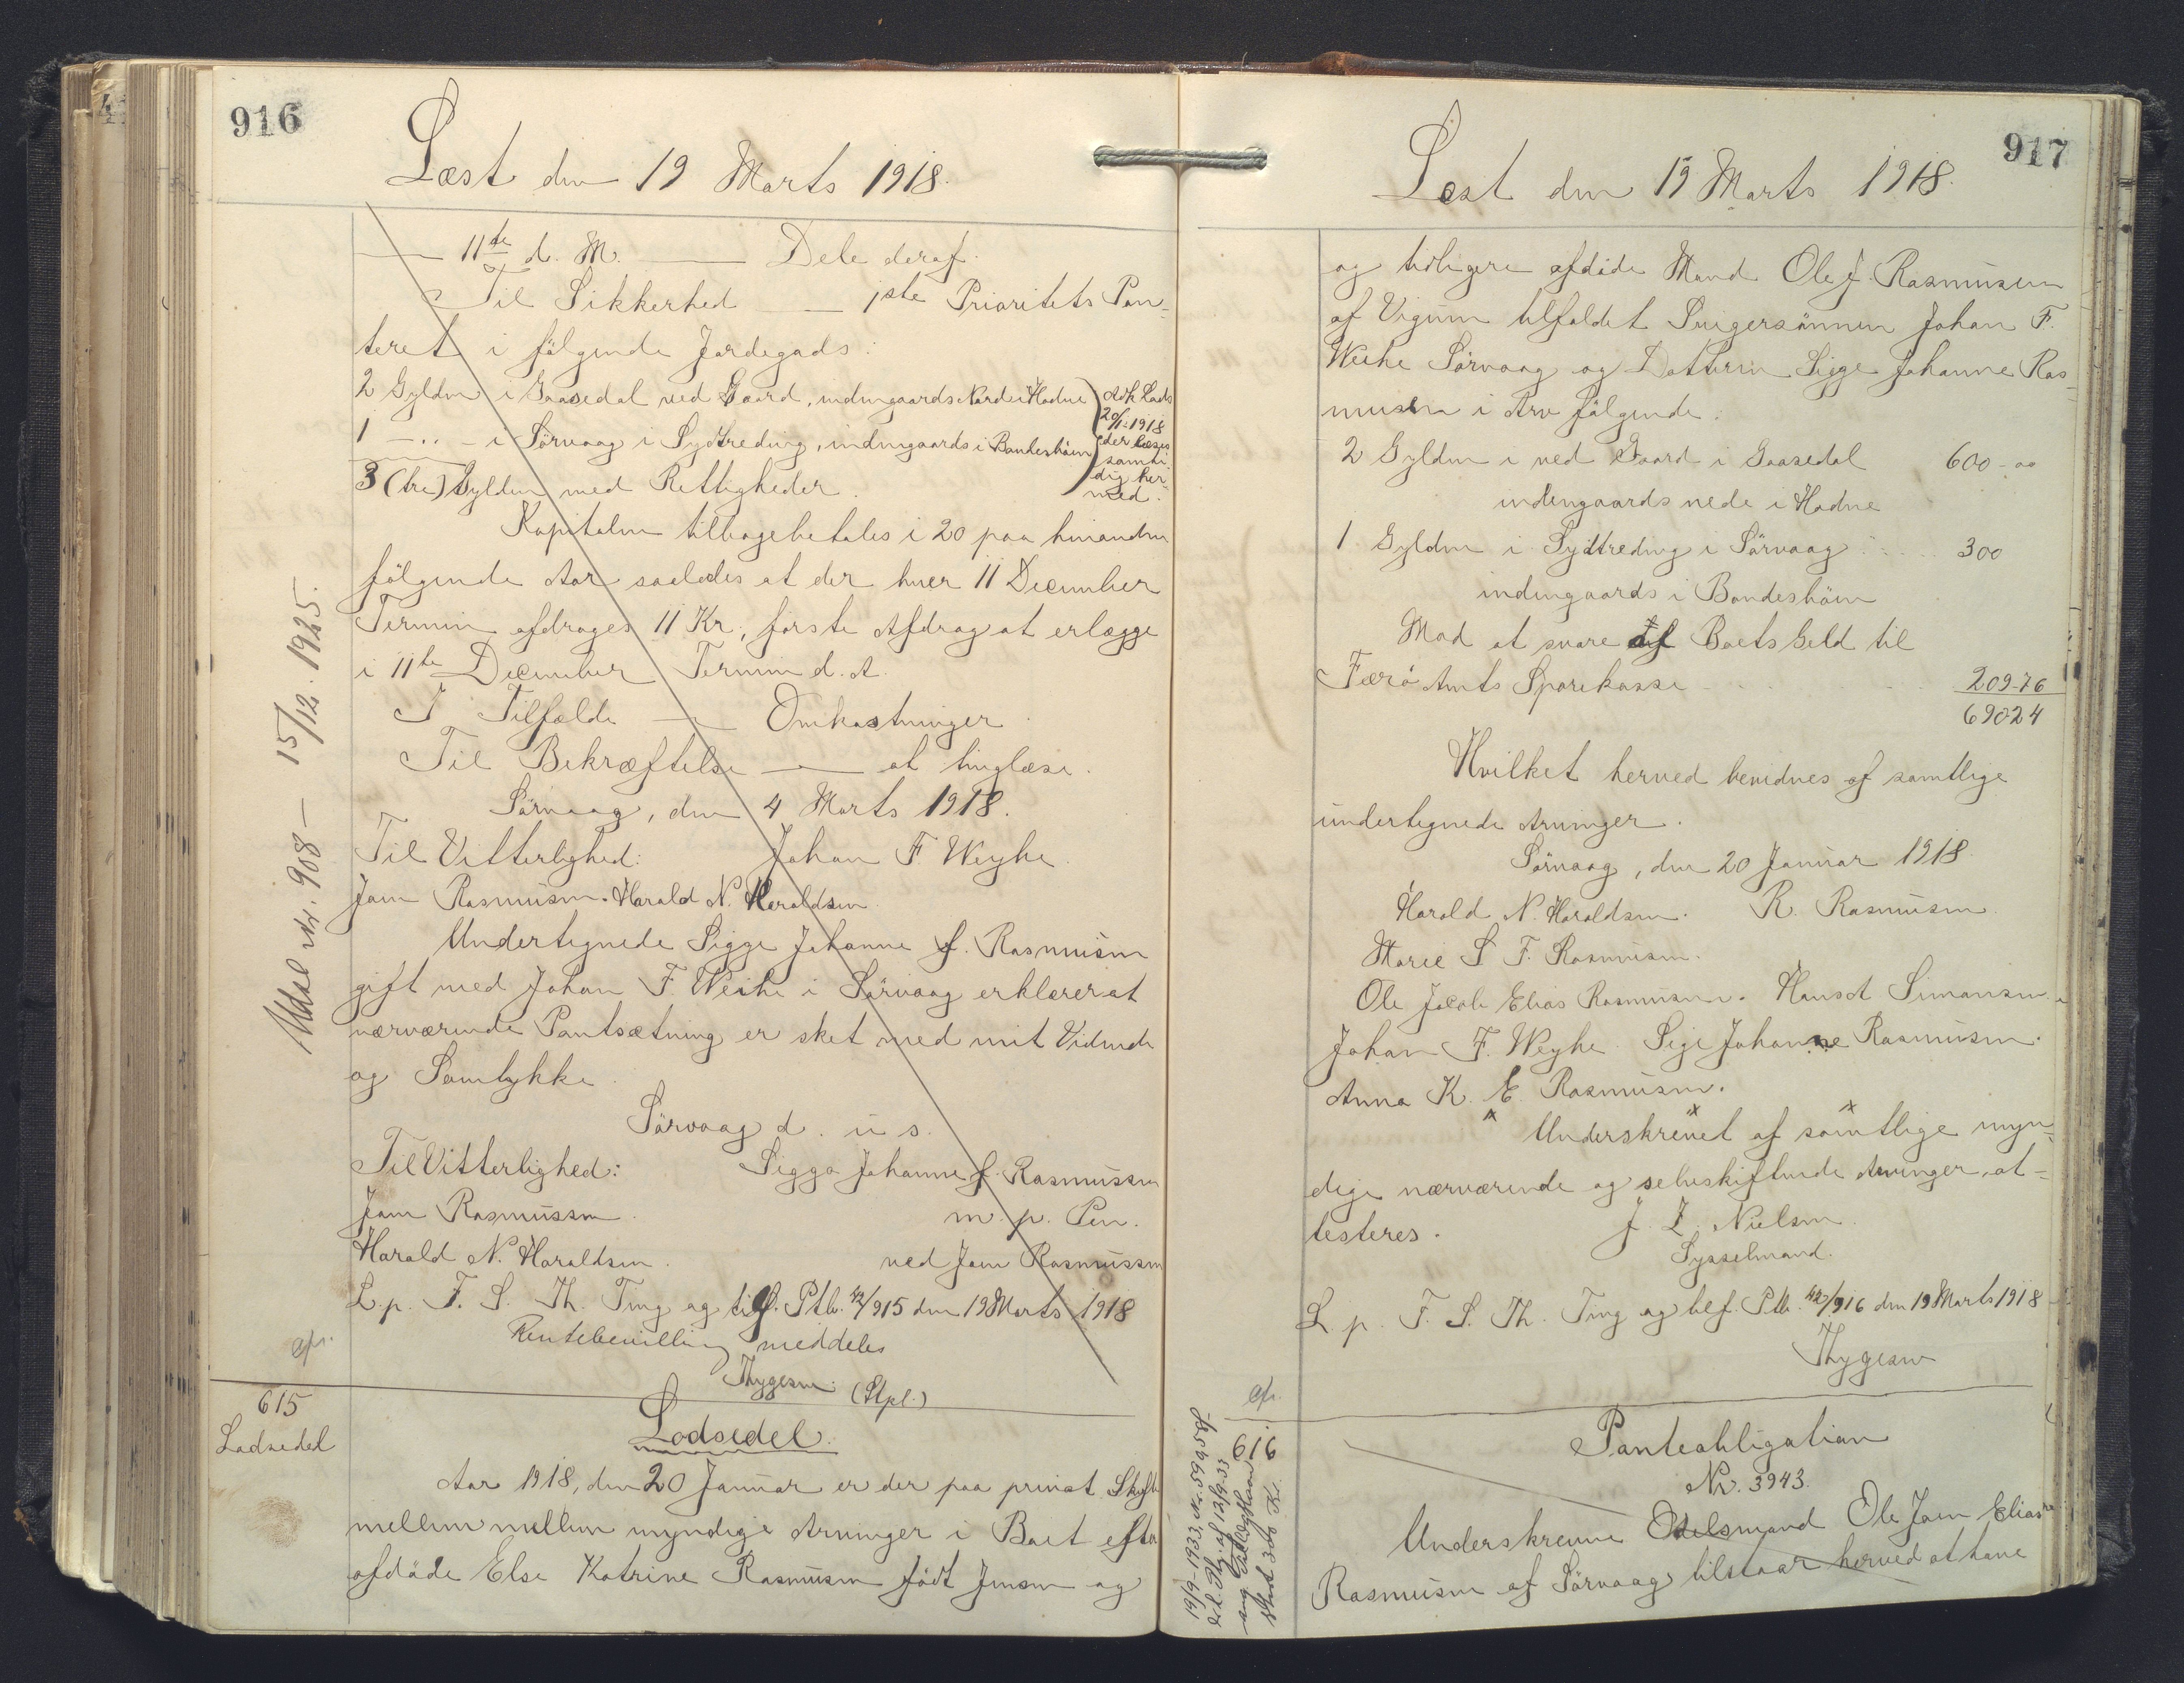 916
Læst den 19 Marts 1918.
— 11te d. M. — Dele deraf.
Til Sikkerhed — 1ste Prioritets Pan-
teret i følgende Jordegods:
2 Gylden i Gaasedal ned Gaard, indengaards Nærde i Hadne
1 — " — i Sörvaag i Sydtreding, indengaards i Bondeshöim
Adk. Lods
20/1-1918
der læses
samti-
dig her-
med.
3 (tre) Gylden med Rettigheder.
Kapitalen tilbagebetales i 20 paa hinanden
følgende Aar saaledes at der hver 11 December
Termin afdrages 11 Kr., første Afdrag at erlægge
i 11te December Termin d. A.
I Tilfælde — Omkostninger.
Til Bekræftelse — at tinglæse.
Sörvaag, den 4 Marts 1918.
Til Vitterlighed: Johan F Weyhe.
Joen Rasmussen. Harald N. Haraldsen
Undertegnede Sigge Johanne J. Rasmussen
gift med Johan F. Weihe i Sörvaag erklærer at
nærværende Pantsætning er sket med mit Vidende
og Samtykke.
Sörvaag d. u. s.
Til Vitterlighed: Sigga Johanne J. Rasmussen
Joen Rasmussen. m. p. Pen.
Harald N. Haraldsen. ved Joen Rasmussen
L. p. F. S. Th. Ting og tilf. Ptb. 42/915 den 19 Marts 1918
Rentebevilling meddeles
Thygesen. (Stpl.)
Udsl. Nr. 908 — 15/12. 1925.
cfr.
615
Lodsedel
Lodsedel.
Aar 1918, den 20 Januar er der paa privat Skifte
mellem mellem myndige Arvinger i Boet efter
afdöde Else Katrine Rasmussen födt Jensen og
917
Læst den 19 Marts 1918.
og tidligere afdöde Mand Ole J. Rasmussen
af Vigum tilfaldet Svigersönnen Johan F.
Weihe Sörvaag og Datteren Sigge Johanne Ras-
mussen i Arv fölgende:
2 Gylden i ned Gaard i Gaasedal 600-00
indengaards nede i Hadne
1 Gylden i Sydtreding i Sörvaag 300
indengaards i Bondeshöim
Mod at svare af Boets Gæld til
Færö Amts Sparekasse 209-76
690 24
Hvilket herved bevidnes af samtlige
undertegnede Arvinger.
Sörvaag, den 20 Januar 1918
Harald N. Haraldsen. R. Rasmussen.
Marie S F. Rasmussen.
Ole Jacob Elias Rasmussen. Hans A Simonsen.
Johan F. Weyhe. Sige Johanne Rasmussen.
Anna K. E. Rasmussen.
Underskrevet af samtlige myn-
dige nærværende og selvskiftende Arvinger, at-
testeres. J. L. Nielsen.
Sysselmand.
L. p. F. S. Th. Ting og tilf. Ptb. 42/916 den 19 Marts 1918
Thygesen
cfr.
616
Panteobligation
Nr. 3943.
Underskrevne Odelsmand Ole Joen Elias
Rasmussen af Sörvaag tilstaar herved at have